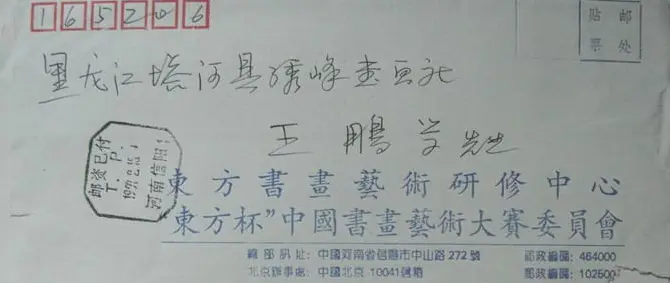 165206
贴 邮
票 处
黑龙江塔河县绣峰书画社
王鹏学先生
邮资已付
T.P.
河南信阳
東方書畫藝術研修中心
東方杯"中國書畫藝術大賽委員會
總部訊址: 中國河南省信陽市中山路272號 郵政編碼: 464000
北京辦事處: 中國北京10041信箱 郵政編碼: 102500